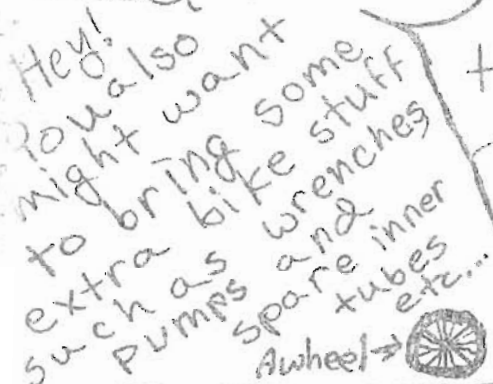 Hey!
You also
might want
to bring some
extra bike stuff
such as wrenches
pumps and
spare inner
tubes
etc...
A wheel→